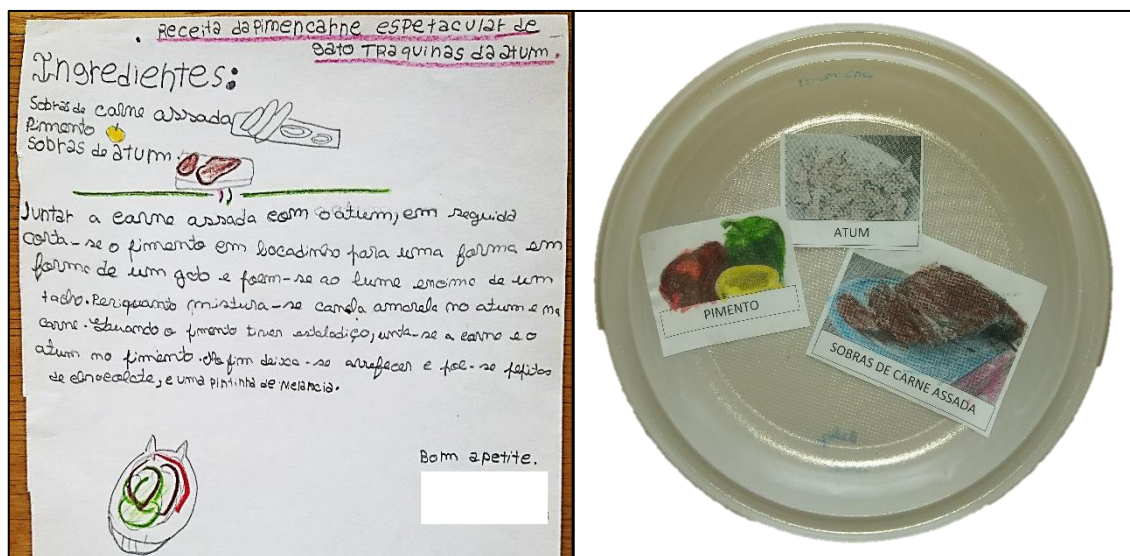 . Receita da Pimencarne espetacular de
gato Traquinas da atum.
Ingredientes:
Sobras de carne assada
Pimento
sobras de atum.
Juntar a carne assada com o atum, em seguida
corta-se o pimento em bocadinho para uma forma em
forma de um gato e poem-se ao lume encima de um
tacho. Penquanto mistura-se canela amarela no atum e na
carne. Quando o pimento tiver estaladiço, junta-se a carne e o
atum no pimento. No fim deixa-se arrefecer e poe-se pepitas
de chocolate, e uma pintinha de melancia.
Bom apetite.
ATUM
PIMENTO
SOBRAS DE CARNE ASSADA